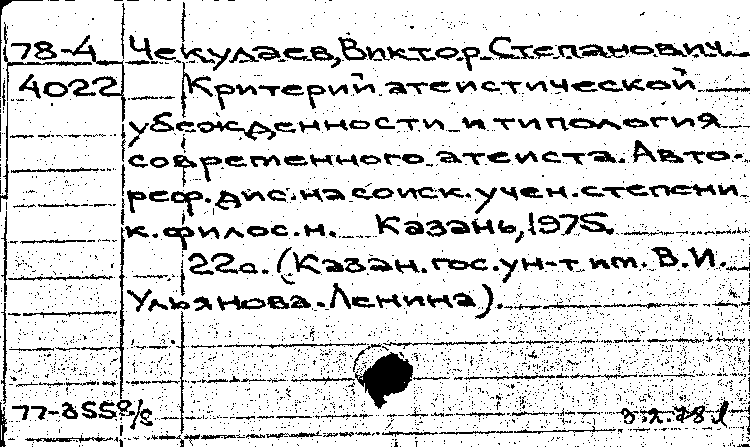 78-4 Чекулаев, Виктор Степанович
4022 Критерий атеистической
убежденности и типология
современного атеиста. Авто-
реф. дис. на соиск. учен. степени
к. филос. н. Казань, 1975.
22с. (Казан. гос. ун-т им. В.И.
Ульянова-Ленина).
77-355